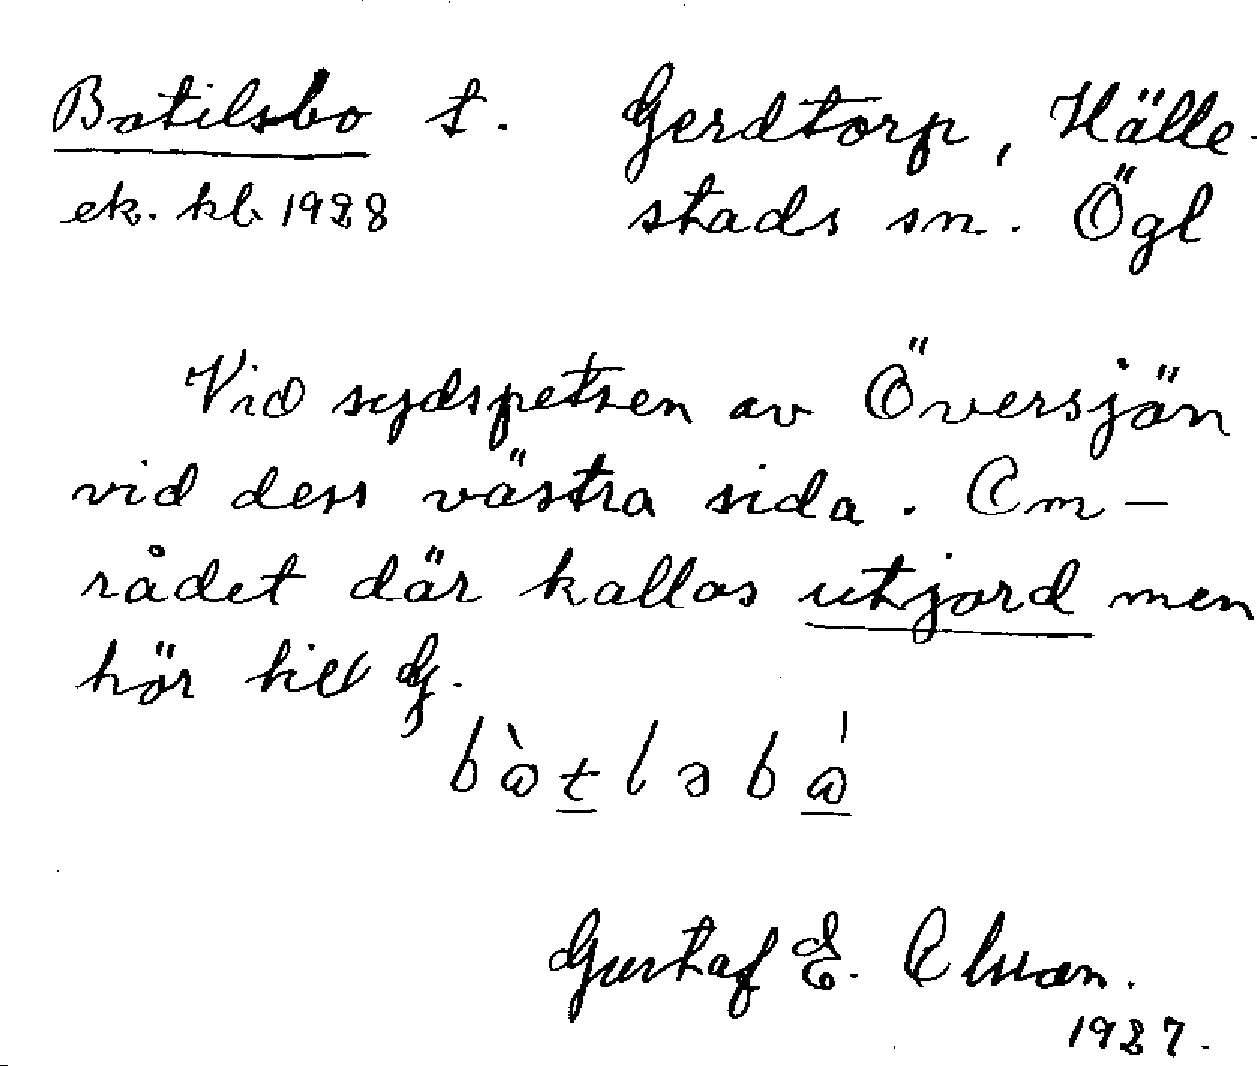 Botilsbo t. Gerdtorp, Hälle-
ek. kb 1928 stads sn. Ögl
Vid sydspetsen av Översjön
vid dess västra sida. Om-
rådet där kallas utjord men
hör till G.
bòtləbó
Gustaf E. Olsson.
1927.